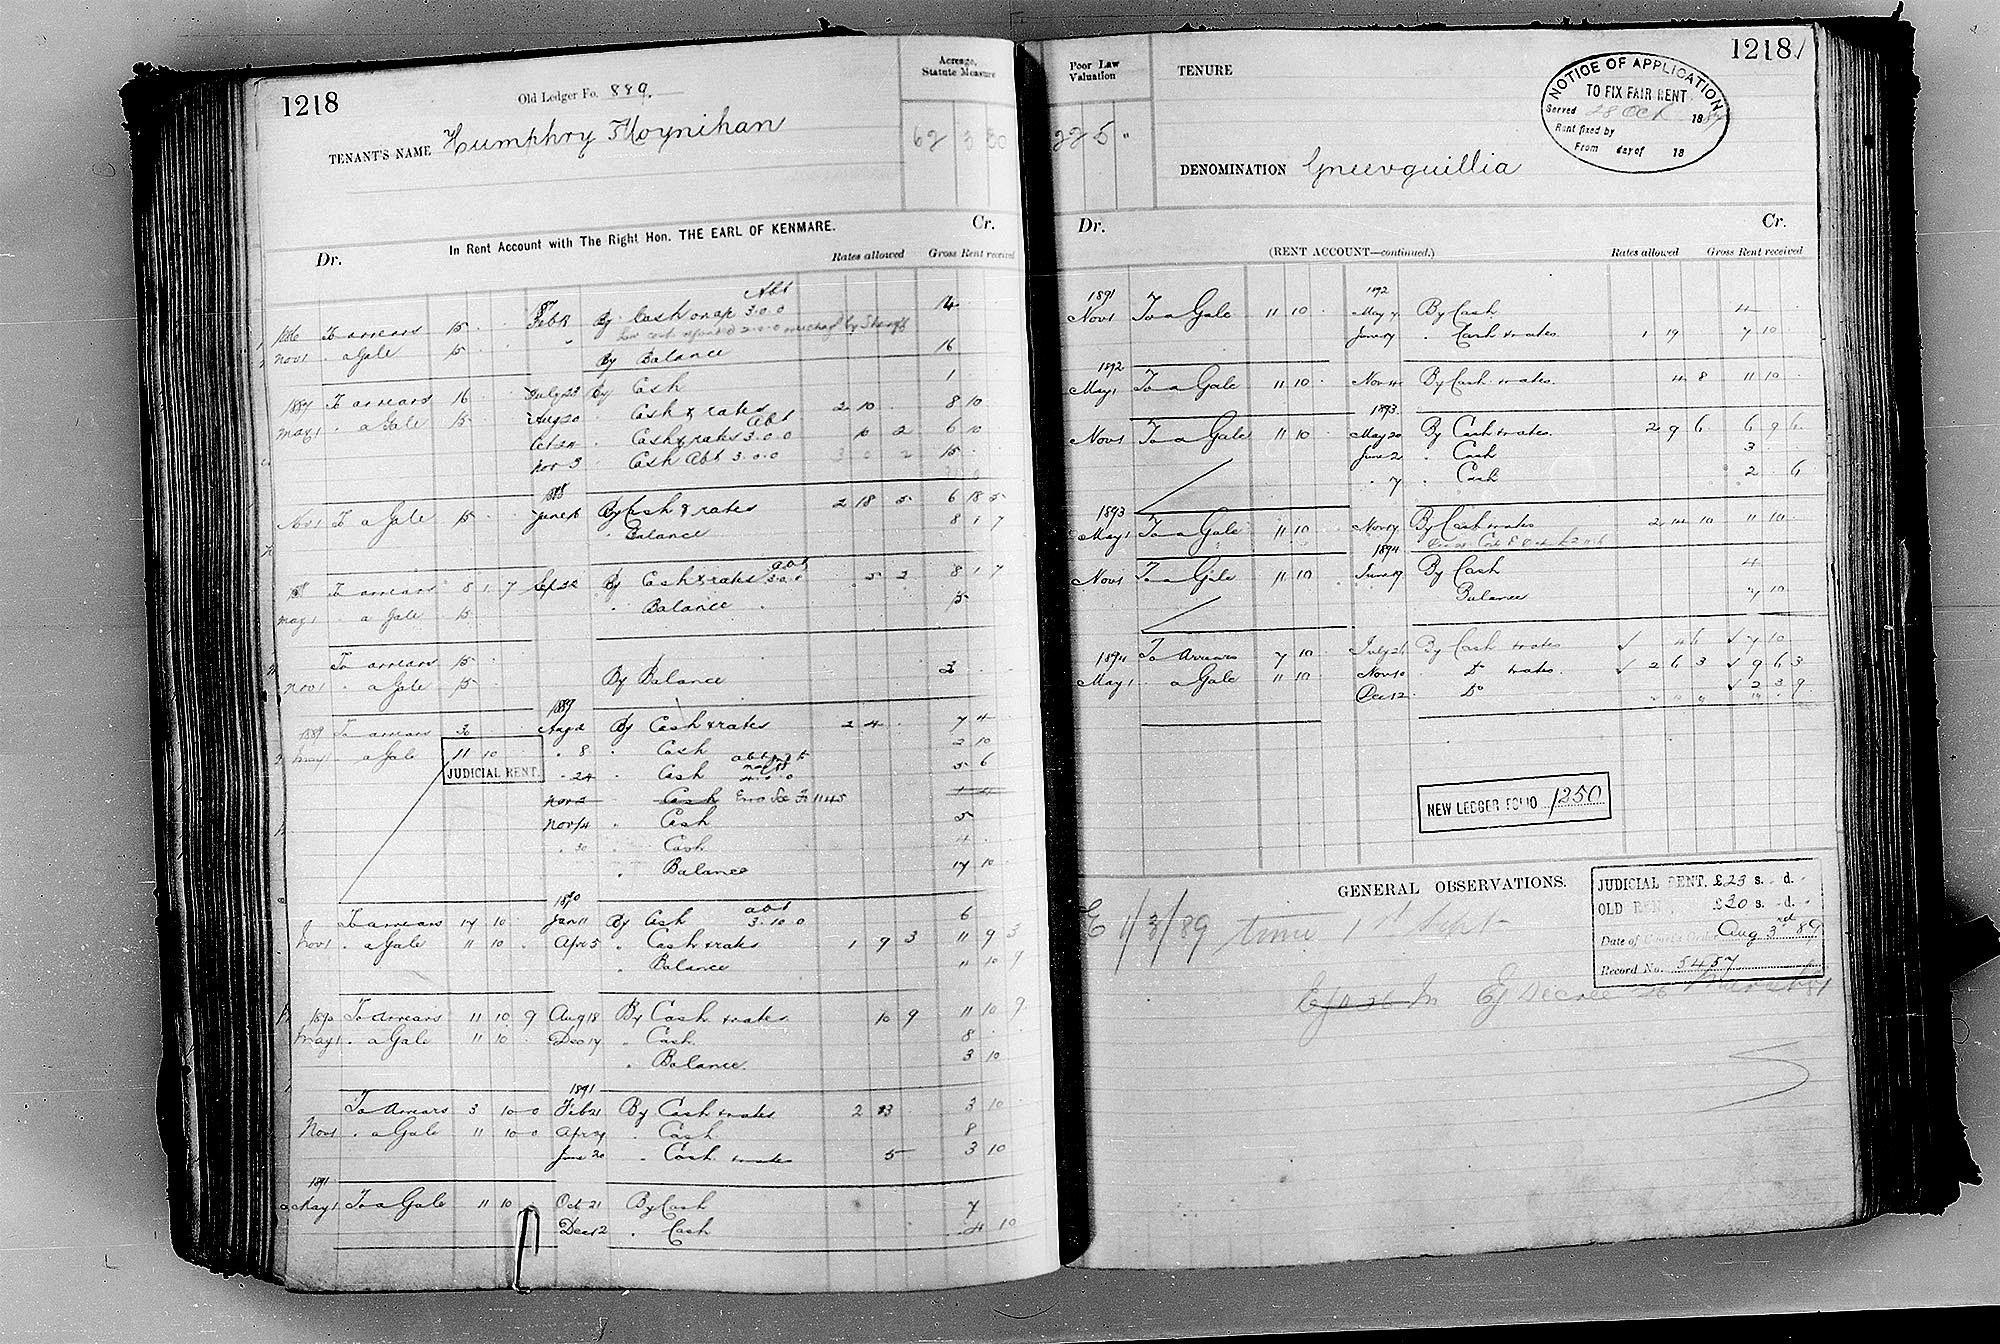 1218
Old Ledger Fo. 889.
Acreage, Statute Measure
TENANT'S NAME Humphry Moynihan
62 3 30
In Rent Account with The Right Hon. THE EARL OF KENMARE.
Dr. Cr.
Rates allowed Gross Rent received
1886 To arrears 15 Feb By Cash on a/c Abt 3.0.0 14
Nov 1 . a Gale 15
By Balance 16
1887 To arrears 16 July 23 By Cash 1
May 1 . a Gale 15 Aug 20 . Cash & rates 2 10 8 10
Oct 24 . Cash & rates Abt 3.0.0 10 2 6 10
Nov 3 Cash Abt 3.0.0 3 0 2 15
1888
Nov 1 To a Gale 15 June 16 By Cash & rates 2 18 5 6 18 5
. Balance 8 1 7
88 To arrears 8 1 7 Sep 22 By Cash & rates abt 3.0.0 5 2 8 1 7
May 1 . a Gale 15 . Balance 15
To arrears 15
Nov 1 . a Gale 15 By Balance
1889
1889 To arrears 30 Aug 2 By Cash & rates 2 4 7 4
May 1 a Gale 11 10 . 8 . Cash 2 10
JUDICIAL RENT.
. 24 . Cash 4.0.0 5 6
Nov 2 Cash Erro See Fo 1145
Nov 14 . Cash 5
. 30 Cash 4
. Balance 17 10
1890
To arrears 17 10 Jan 11 By Cash abt 3.10.0 6
Nov 1 . a Gale 11 10 Apr 5 . Cash & rates 1 9 3 11 9 3
. Balance 11 10 9
1890 To arrears 11 10 9 Aug 18 By Cash & rates 10 9 11 10 9
May 1 . a Gale 11 10 Dec 17 . Cash 8
. Balance 3 10
1891
To arrears 3 10 0 Feb 21 By Cash & rates 2 13 3 10
Nov 1 . a Gale 11 10 0 Apr . Cash 8
June 20 . Cash & rates 5 3 10
1891
May 1 To a Gale 11 10 Oct 21 By Cash 7
Dec 12 . Cash 4 10
1218
Poor Law Valuation
TENURE
22 5 "
NOTICE OF APPLICATION
TO FIX FAIR RENT
Served 28 Oct 1887
Rent fixed by
From day of 18
DENOMINATION Gneevguillia
Dr. Cr.
(RENT ACCOUNT—continued.)
Rates allowed Gross Rent received
1891 1892
Nov 1 To a Gale 11 10 May 7 By Cash 4
June 17 . Cash & rates 1 19 7 10
1892
May 1 To a Gale 11 10 Nov 14 By Cash & rates. 4 8 11 10
1893
Nov 1 To a Gale 11 10 May 20 By Cash & rates. 2 9 6 6 9 6
June 2 . Cash 3
. 7 . Cash 2 . 6
1893
May 1 To a Gale 11 10 Nov 17 By Cash & rates 2 14 10 11 10
1894
Nov 1 To a Gale 11 10 June 17 By Cash 4
Balance 7 10
1894 To Arrears 7 10 July 26 By Cash & rates 4 6 7 10
May 1 a Gale 11 10 Nov 10 . Do & rates. 2 6 3 9 6 3
Dec 12 Do 2 3 9
NEW LEDGER FOLIO 1250
GENERAL OBSERVATIONS.
E 1/3/89 time 1st Sept
JUDICIAL RENT. £23 s. - d. -
OLD RENT, £30 s. - d. -
Date of Court's Order Aug 3rd 89
Record No. 5457
Ej Decree